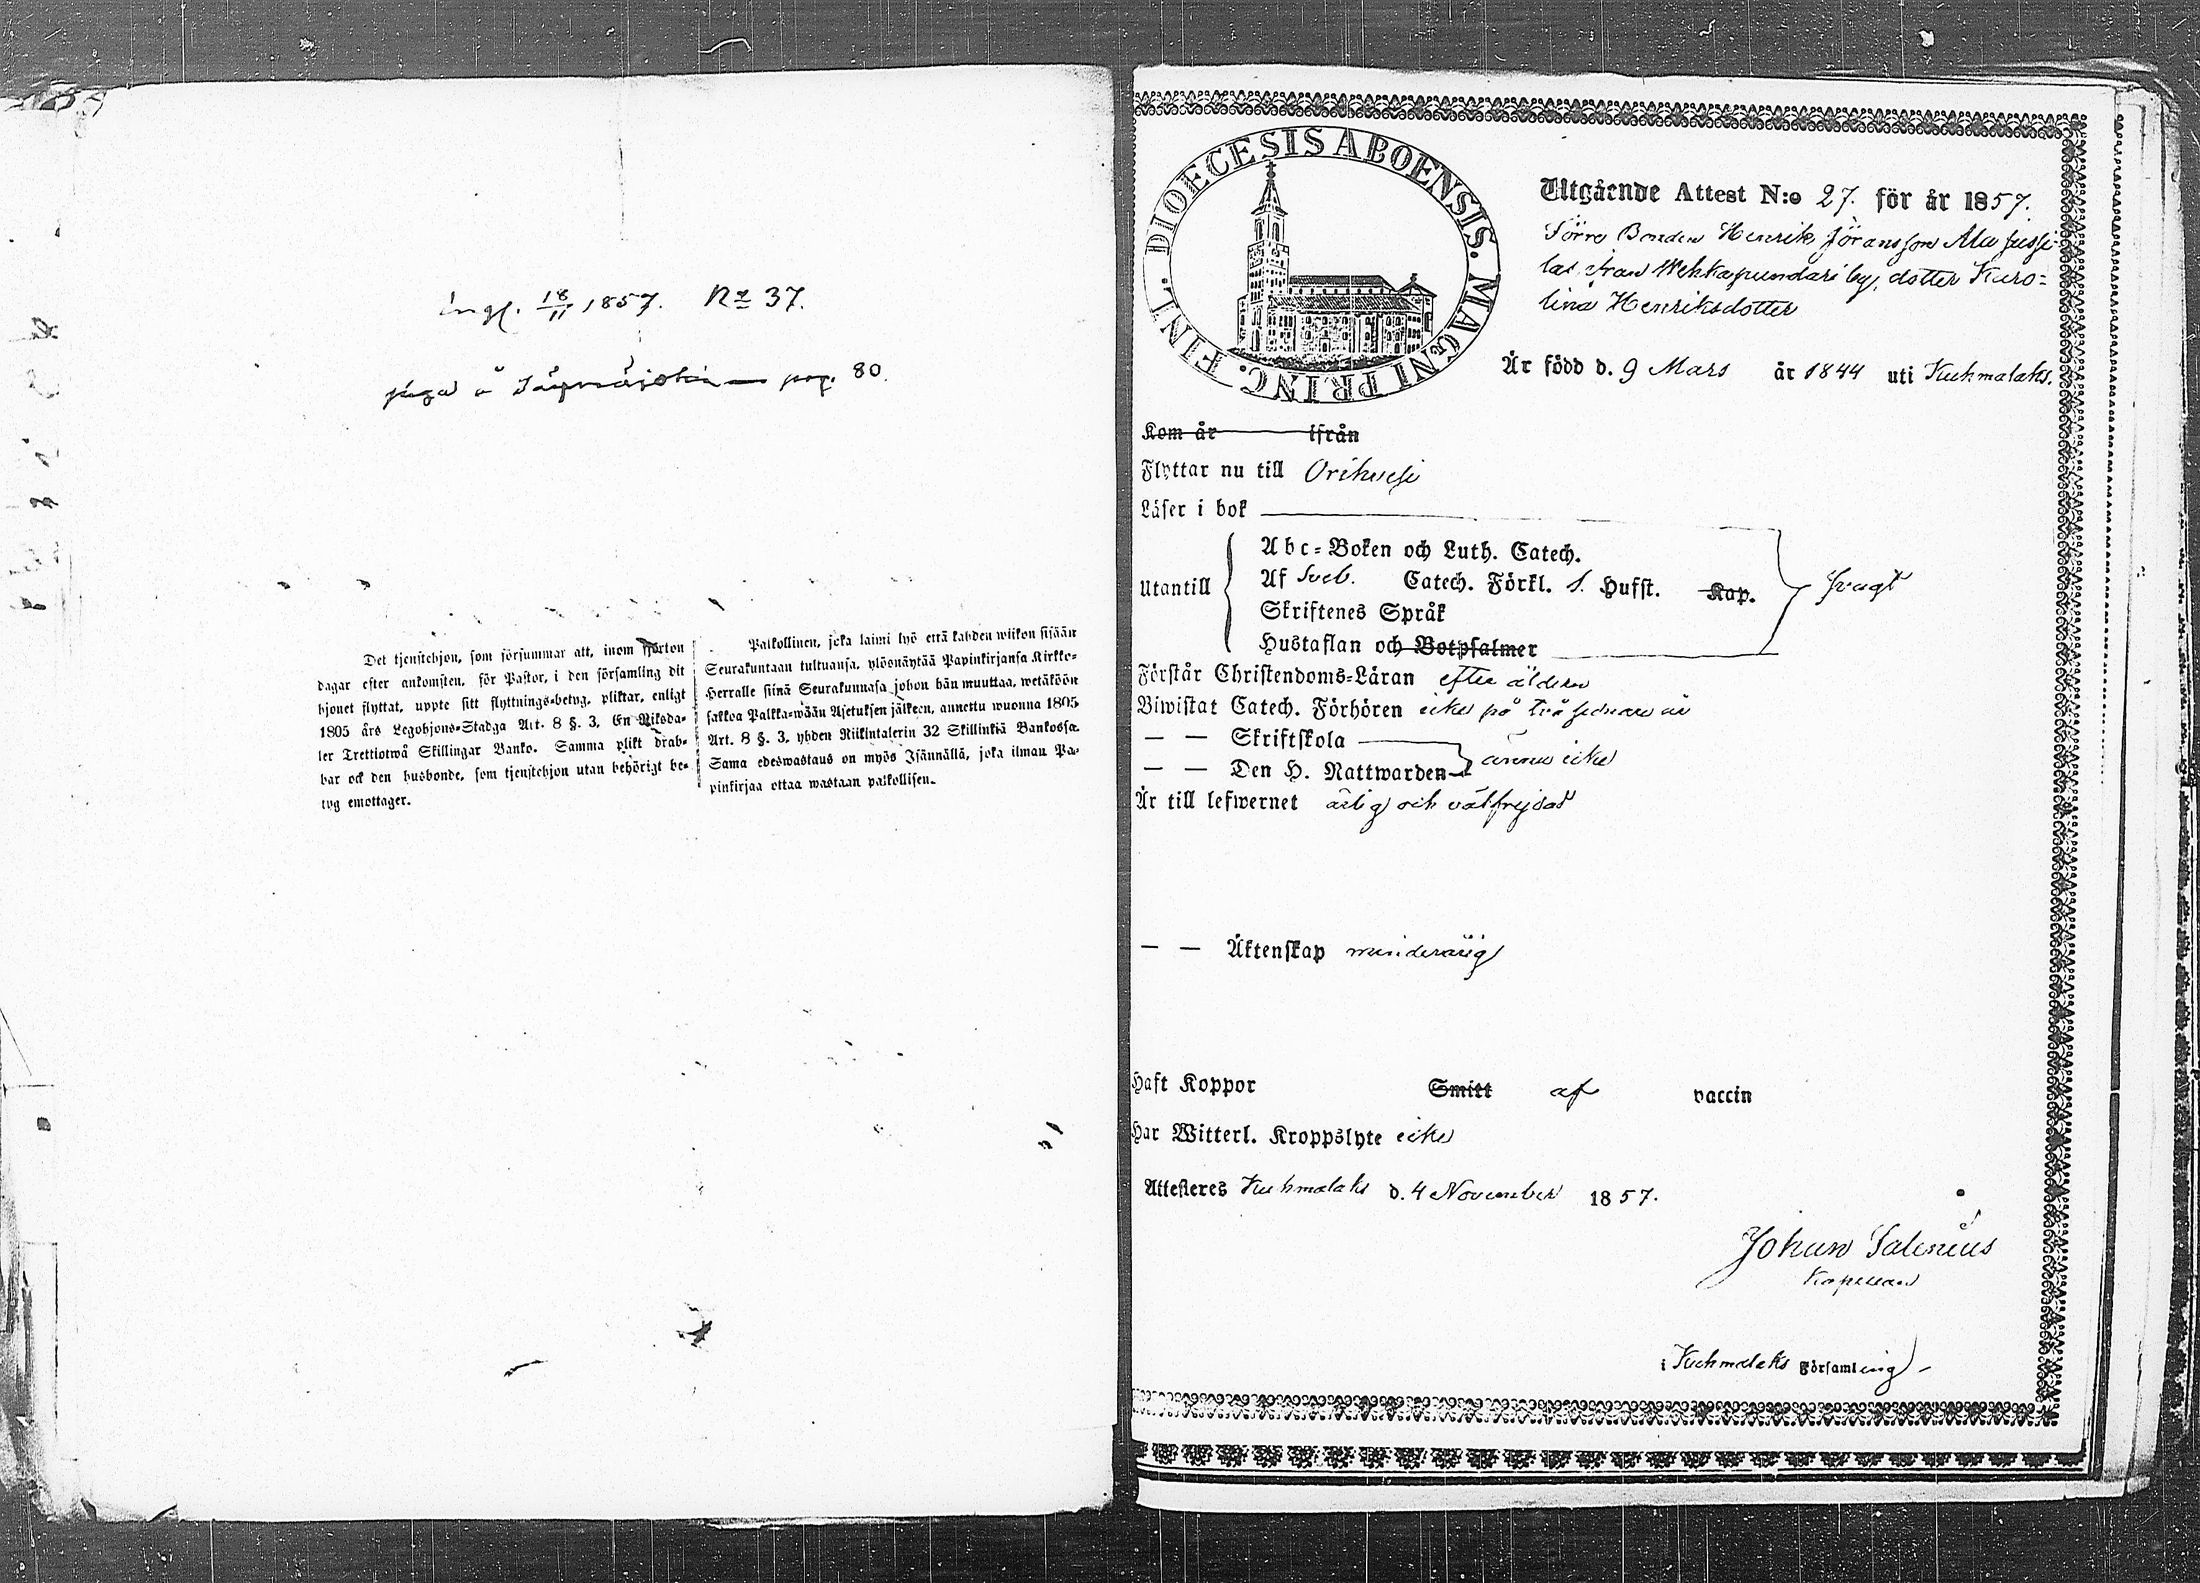 ingf. 18/11 1857. No 37.
piga å pag. 80.
Det tjenstehjon, som försummar att, inom fjorton
dagar efter ankomsten, för Pastor, i den församling dit
hjonet flyttat, uppte sitt flyttnings-betyg, pliktar, enligt
1805 års Legohjons-Stadga Art. 8 §. 3, En Riksda-
ler Trettiotwå Skillingar Banko. Samma plikt drab-
bar ock den husbonde, som tjenstehjon utan behörigt be-
tyg emottager.
Palkollinen, joka laimi lyö että kahden wiikon sisään
Seurakuntaan tultuansa, ylösnäytää Papinkirjansa Kirkko-
Herralle siinä Seurakunnasa johon hän muuttaa, wetäköön
sakkoa Palkka-wään Asetuksen jälkeen, annettu wuonna 1805
Art. 8 §. 3, yhden Riikintalerin 32 Skillinkiä Bankossa.
Sama edeswastaus on myös Isännällä, joka ilman Pa-
pinkirjaa ottaa wastaan palkollisen.
DIOECESIS ABOENSIS. MAGNI PRINC. FINL.
Utgående Attest N:o 27. för år 1857.
Förre Bonden Henrik Jöransson Ala Jussi-
las från Wehkapundari by, dotter Karo-
lina Henriksdotter
Är född d. 9 Mars år 1844 uti Kuhmalaks.
Kom år ifrån
Flyttar nu till Orihvesi
Läser i bok
Utantill
Abc-Boken och Luth. Catech.
Af Sveb. Catech. Förkl. 1. Hufst. Kap.
Skriftenes Språk
Hustaflan och Botpsalmer
svagt
Förstår Christendoms-Läran efter åldern
Biwistat Catech. Förhören icke på två sednare år
— — Skriftskola
— — Den H. Nattwarden ännu icke
Är till lefwernet ärlig och välfrejdad
— — Äktenskap minderårig
Haft Koppor Smitt af vaccin
Har Witterl. Kroppslyte icke
Attesteres Kuhmalaks d. 4 November 1857.
Johan Salenius
Kapellan
i Kuhmalaks Församling